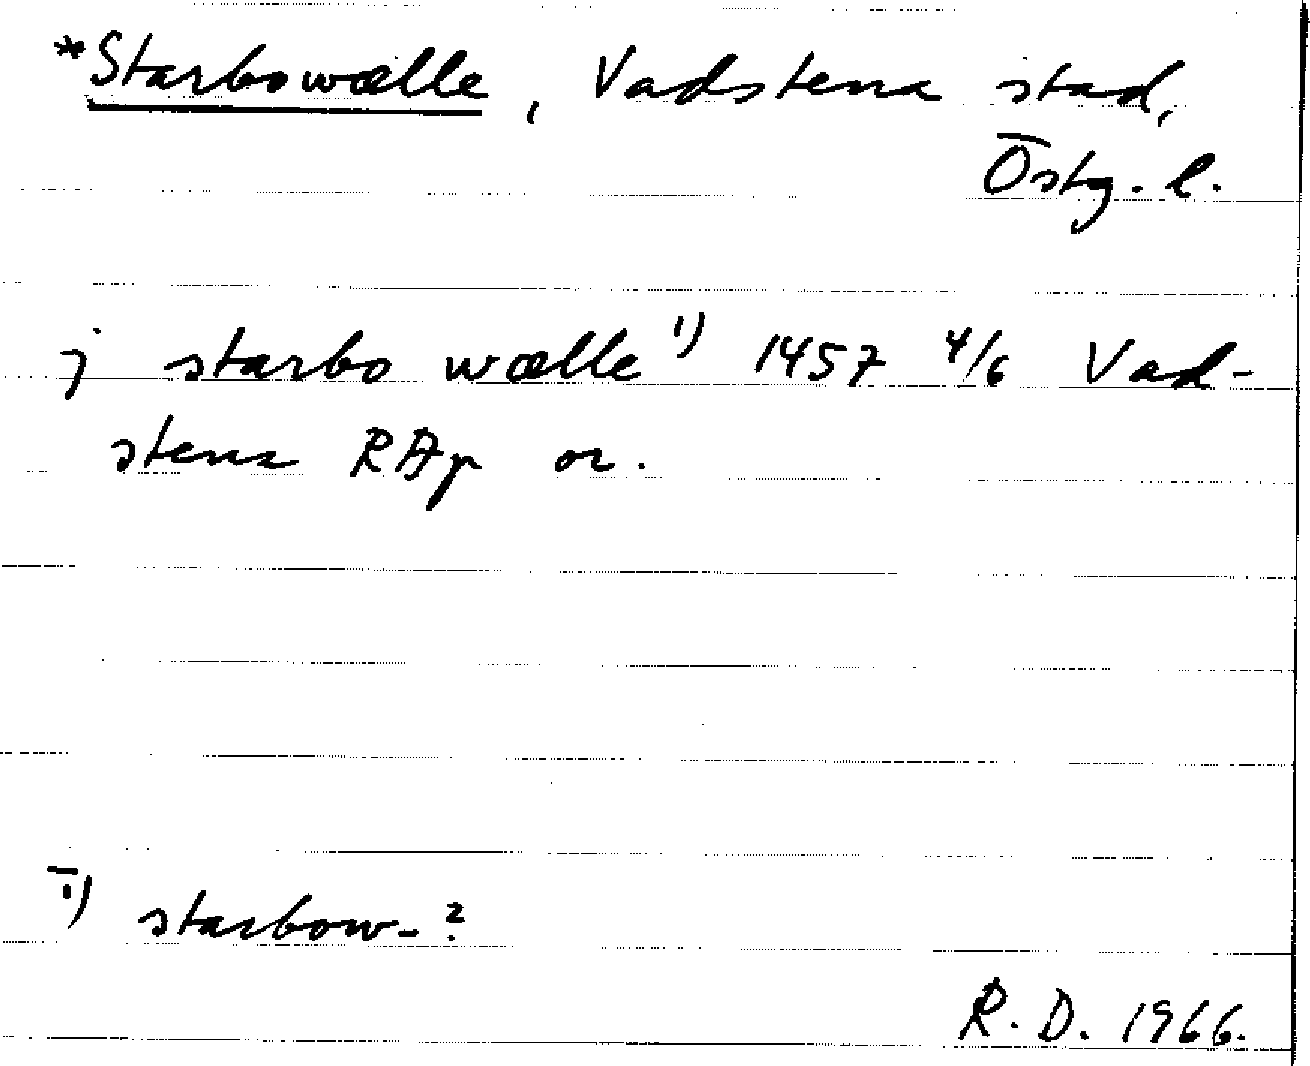 *Starbowælle, Vadstena stad,
Östg. l.
j starbo wælle ¹) 1457 4/6 Vad-
stena RAp or.
¹) starbow-?
R. D. 1966.